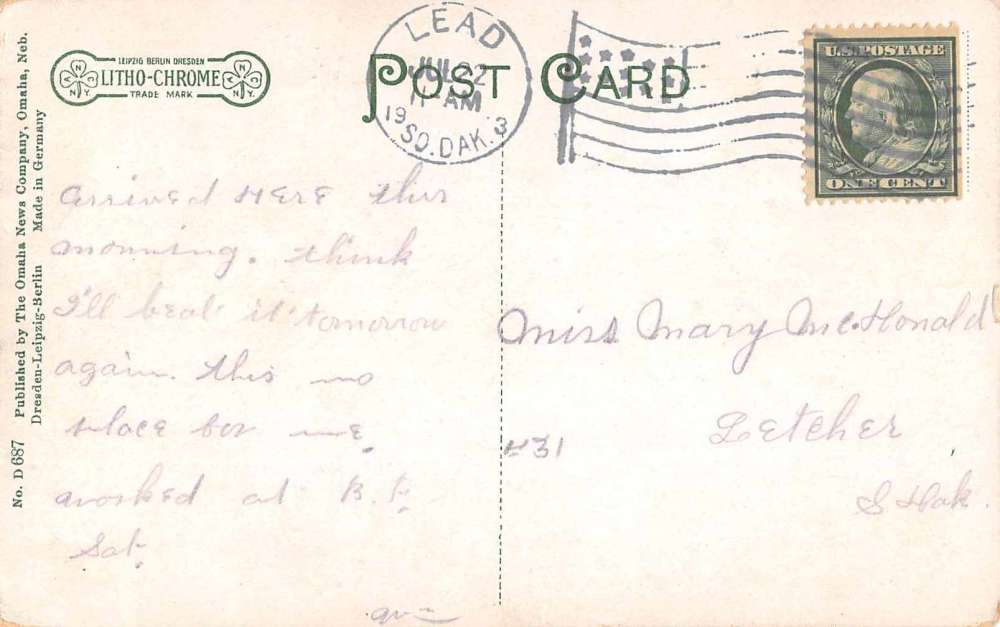 No. D 687 Published by The Omaha News Company, Omaha, Neb.
Dresden-Leipzig-Berlin Made in Germany
LEIPZIG BERLIN DRESDEN
LITHO-CHROME
TRADE MARK
N.Y.
POST CARD
LEAD
JUL 22
11 AM
19 3
SO. DAK.
U.S. POSTAGE
ONE CENT
arrived HERE this
morning. think
I'll beat it tomorrow
again. this no
place for me.
worked at B. F.
Sat.
Miss Mary McDonald
Letcher
S Dak.
#31